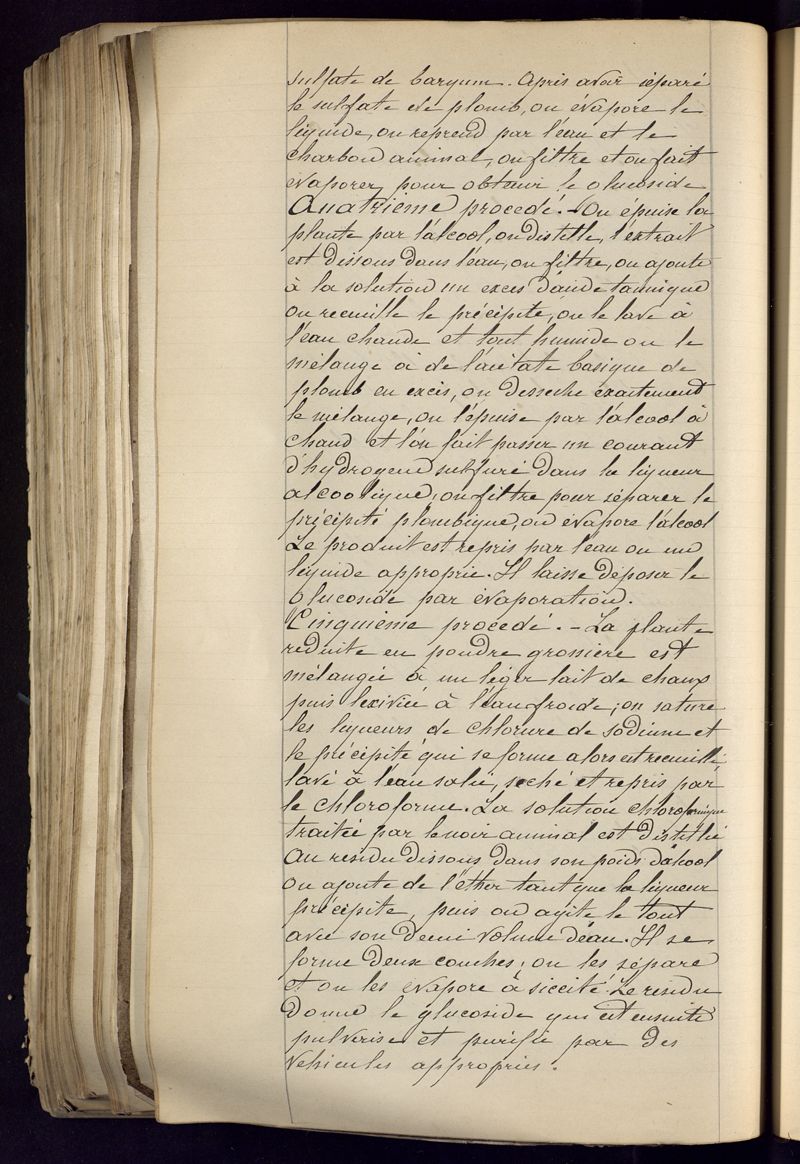 sulfate de baryum. Après avoir séparé
le sulfate de plomb, on évapore le
liquide, on reprend par l'eau et le
charbon animal, on filtre et on fait
évaporer pour obtenir le glucoside
Quatrième procédé. - On épuise la
plante par l'alcool, on distille, l'extrait
est dissous dans l'eau, on filtre, on ajoute
à la solution un excès d'acide tannique
on recueille le précipité, on le lave à
l'eau chaude et tout humide on le
mélange à de l'acétate basique de
plomb en excès, on dessèche exactement
le mélange, on l'épuise par l'alcool à
chaud et l'on fait passer un courant
d'hydrogène sulfuré dans la liqueur
alcoolique, on filtre pour séparer le
précipité plombique, on évapore l'alcool
Le produit est repris par l'eau ou un
liquide approprié. Il laisse déposer le
glucoside par évaporation.
Cinquième procédé. - La plante
réduite en poudre grossière est
mélangée à un léger lait de chaux
puis lexiviée à l'eau froide; on sature
les liqueurs de chlorure de sodium et
le précipité qui se forme alors est recueilli,
lavé à l'eau salée, séché et repris par
le chloroforme. La solution chloroformique
traitée par le noir animal est distillée
Au résidu dissous dans son poids d'alcool
on ajoute de l'éther tant que la liqueur
précipite, puis on agite le tout
avec son demi volume d'eau. Il se
forme deux couches; on les sépare
et on les évapore à siccité. Le résidu
donne le glucoside qui est ensuite
pulvérisé et purifié par des
véhicules appropriés.